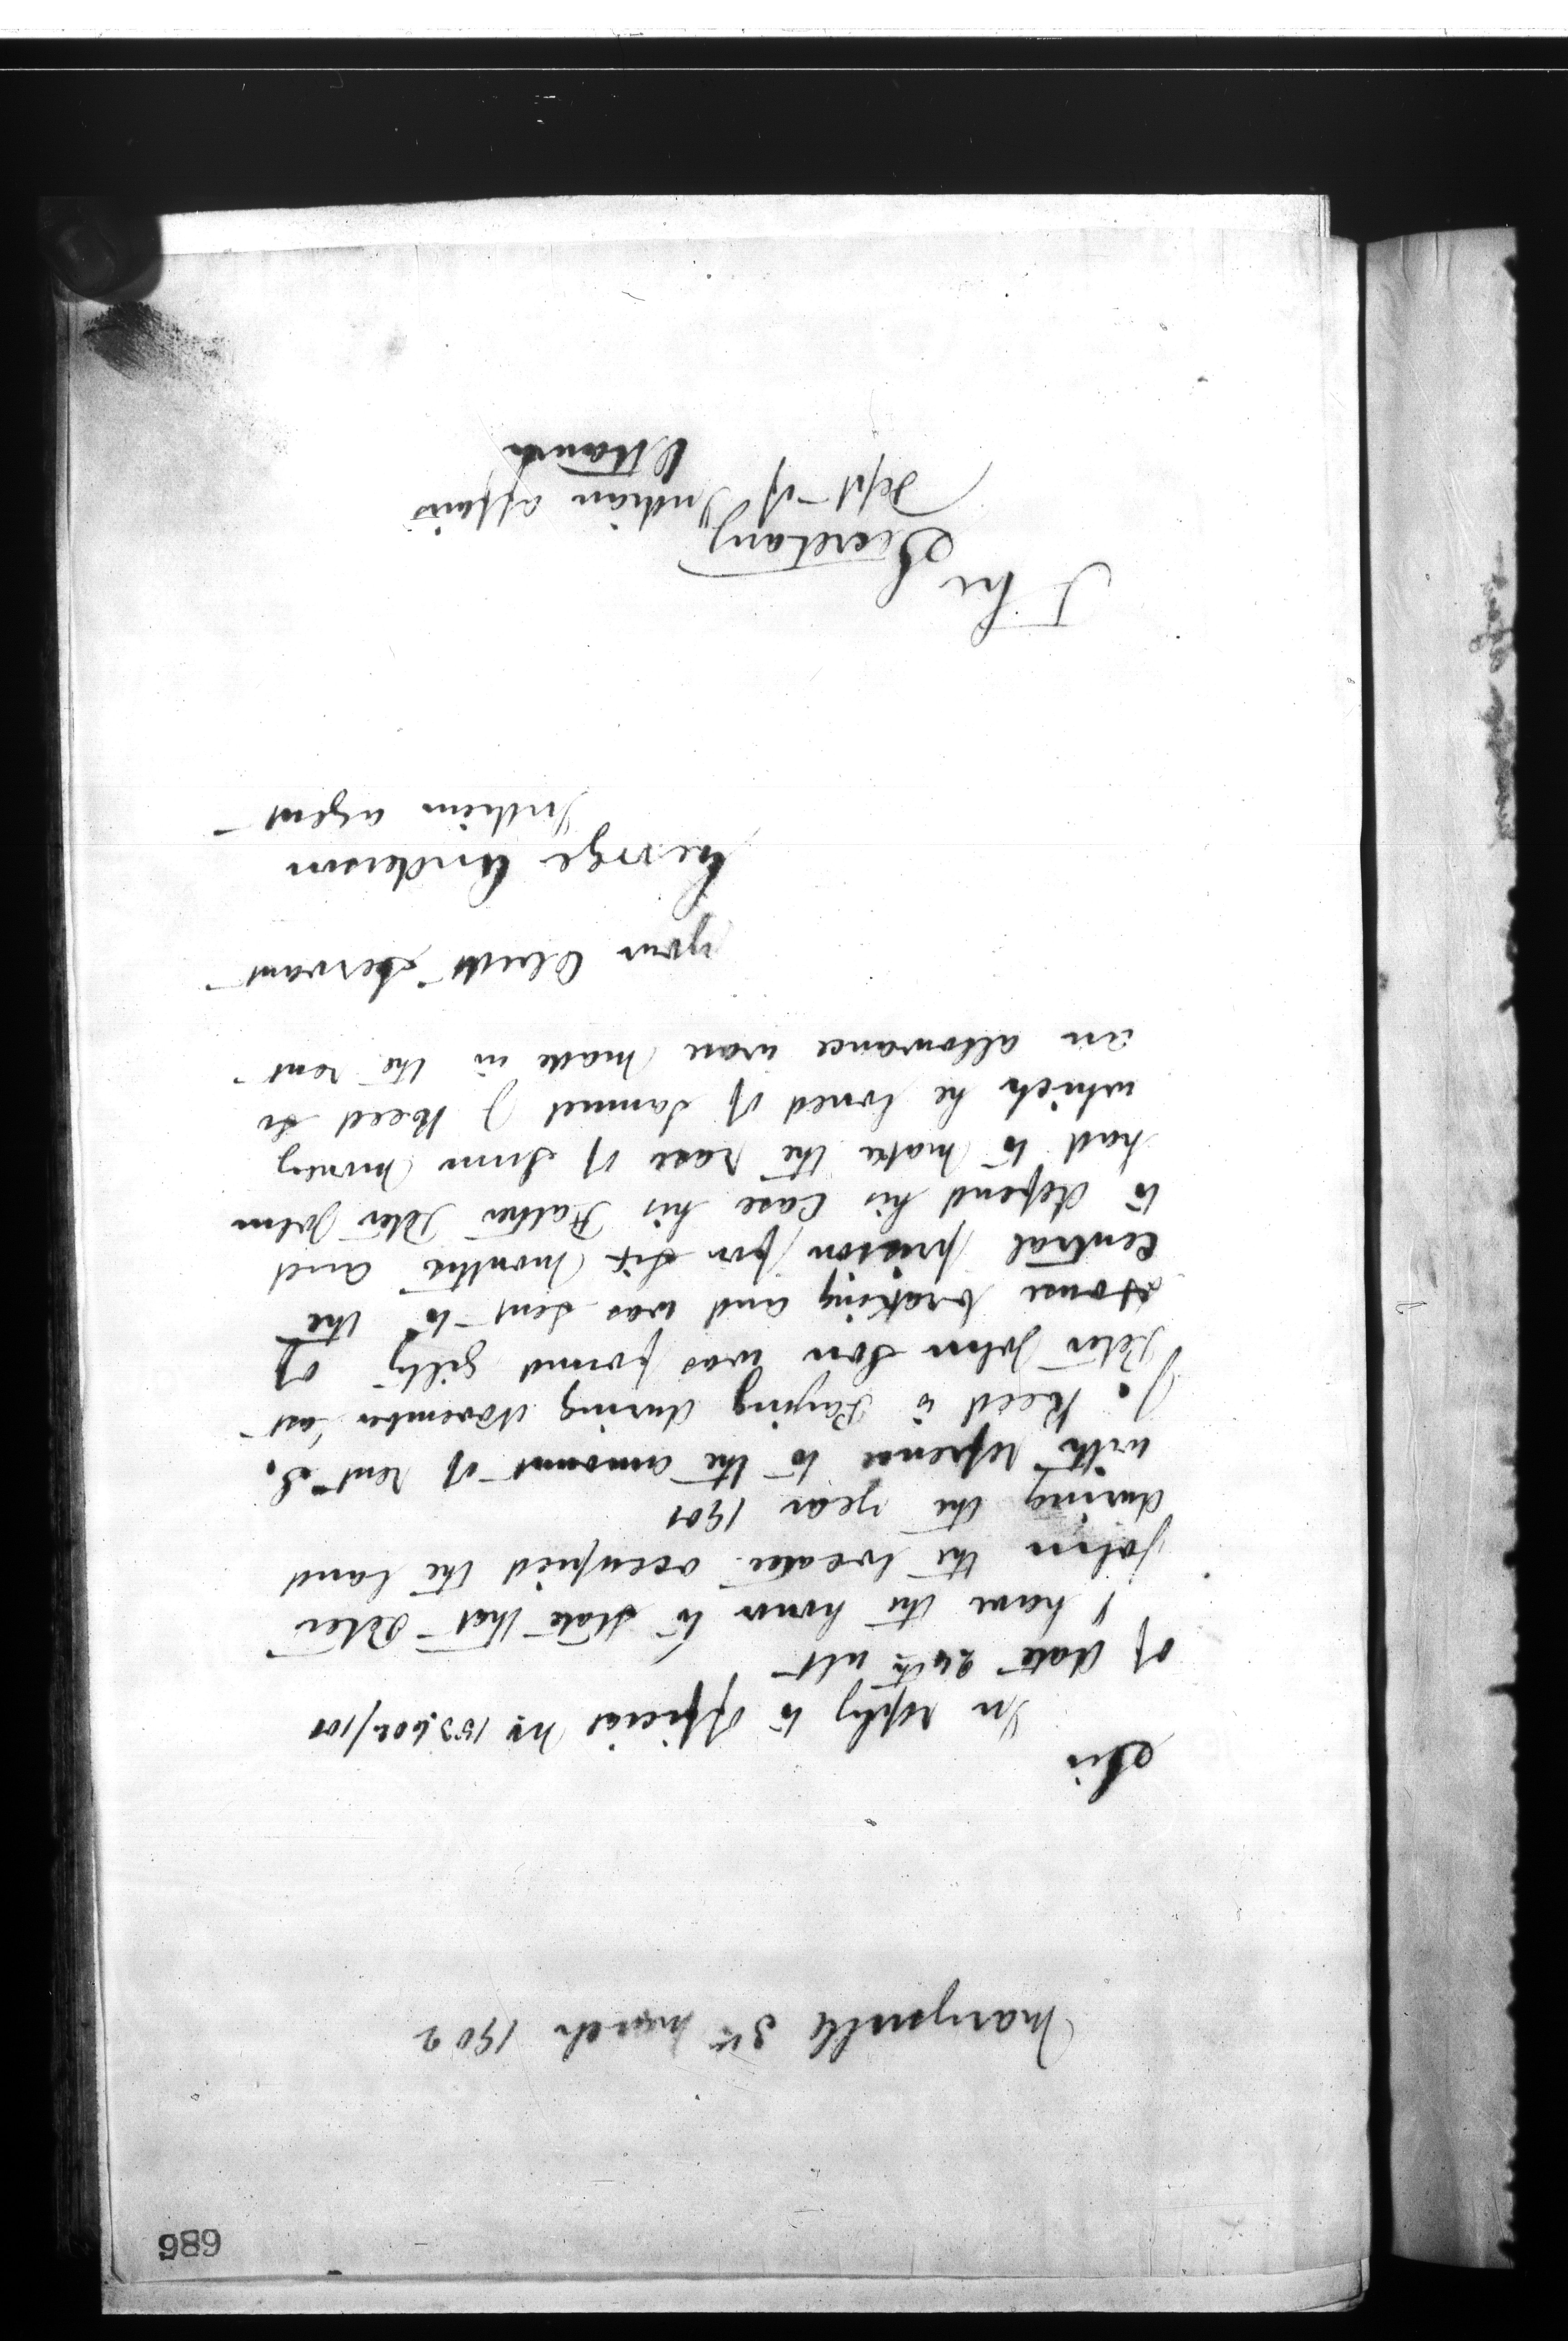 686
Marysville 3rd March 1902
Sir
In reply to official No 153,602/101
of date 24th ult
I have the honor to state that Peter
John the locatee occupied the land
during the year 1901
with refrence to the amount of rent S.
J. Reed is Paying during November last
Peter John Son was found gilty of
House braking and was sent to the
Central prison for six months and
to defend his Case his Father Peter John
had to make the rase of Sum money
which he loned of Samuel J Reed so
an allowance was made in the rent
your Obedt Servant
George Anderson
Indian agent
The
Secretary
Dept of Indian Affairs
Ottawa